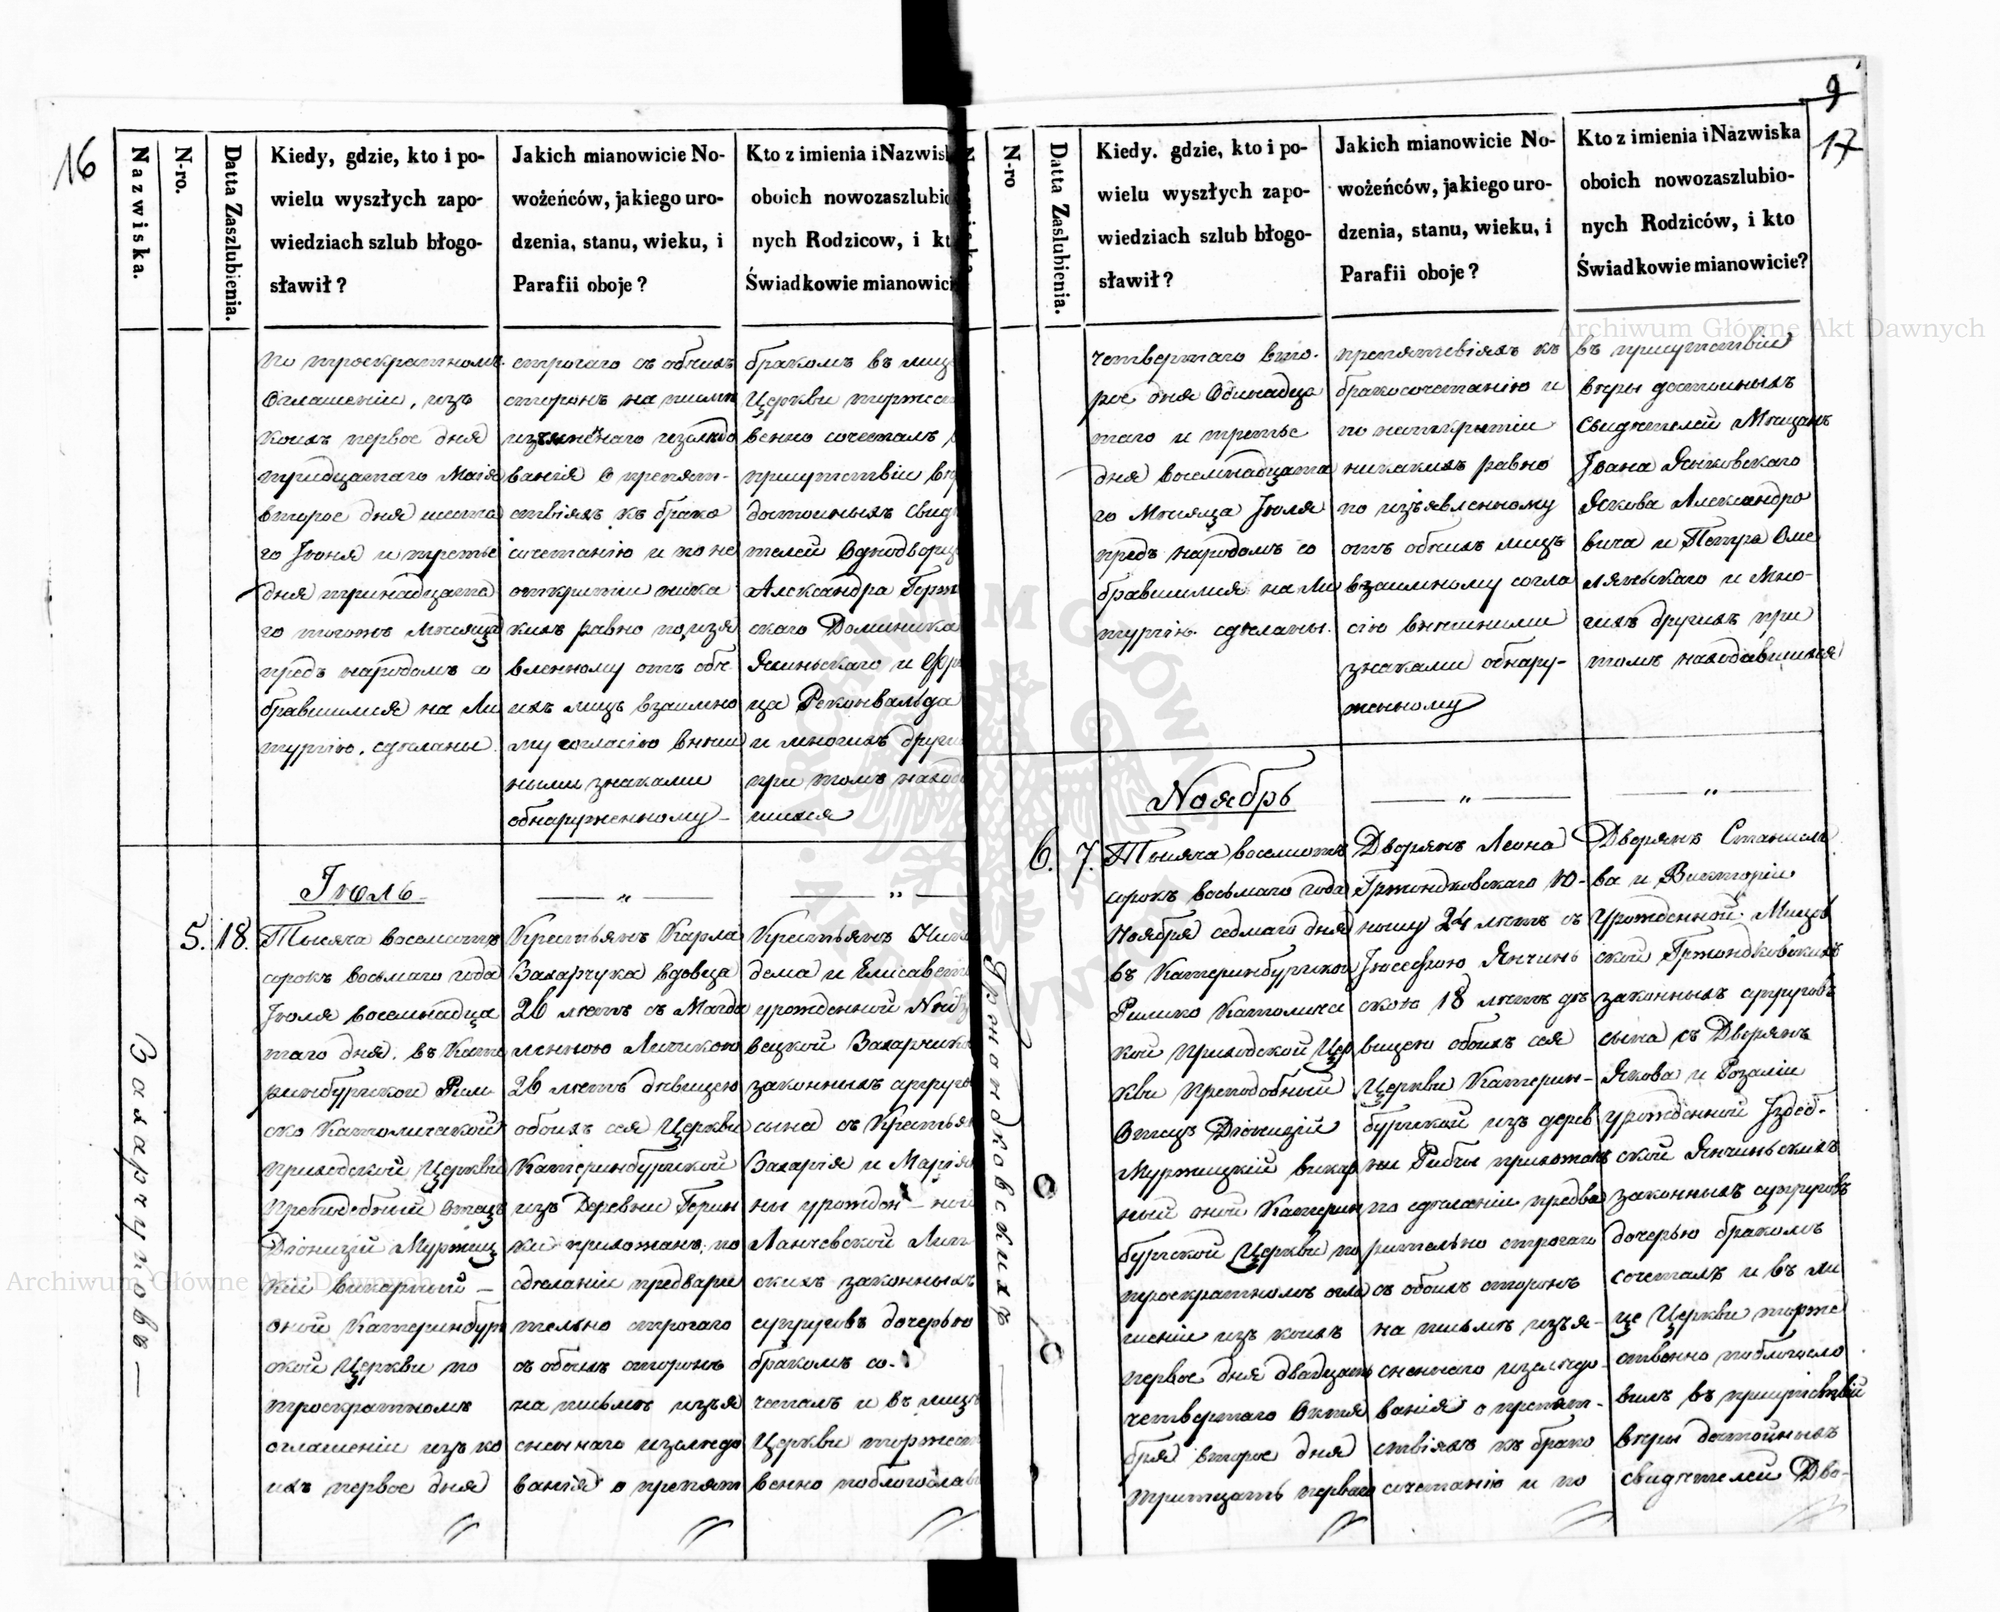 16
Nazwiska.
N-ro.
Datta Zaszlubienia.
Kiedy, gdzie, kto i po-
wielu wyszłych zapo-
wiedziach szlub błogo-
sławił?
Jakich mianowicie No-
wożeńców, jakiego uro-
dzenia, stanu, wieku, i
Parafii oboje?
Kto z imienia i Nazwisk
oboich nowozaszlubio
nych Rodzicow, i kt
Świadkowie mianowici
по троекратномъ
Оглашеніи, изъ
коихъ первое дня
тридцатаго Маія
второе дня шеста
го Іюня и третье
дня тринадцата
го тогожъ Мѣсяца
предъ народомъ со
бравшимся на Ли
тургію, сдѣланы
строгаго съ обѣихъ
сторонъ на письмѣ
изъясненаго изслѣдо
ванія о препят-
ствіяхъ къ брако
сочетанію и по не
открытіи ника
кихъ равно по изъя
вленному отъ обѣ
ихъ лицъ взаимно
му согласію внѣш
ными знаками
обнаруженному
бракомъ въ лиц
Церкви торжест
венно сочеталъ
присутствіи вѣр
достойныхъ свид
телей Однодворц
Александра
скаго Доминика
Ясиньскаго и
ца Реконвальда
и многихъ други
при томъ наход
шихся
Іюль
— „ —
— „ —
5. 18.
Захарчуковъ —
Тысяча восемсотъ
сорокъ восьмаго года
Іюля восемнадца
таго дня. въ Кате
ринбургской Рим
ско Католической
приходской Церкви
Преподобный Отецъ
Діонизій Муржиц
кій викарный —
оной Катеринбург
ской Церкви по
троекратномъ
оглашеніи изъ ко
ихъ первое дня
Крестьянъ Карла
Захарчука вдовца
26 лѣтъ съ Магда
леною Липикою
26 лѣтъ дѣвицею
обоихъ сея Церкви
Катеринбургской
изъ Деревни Герин
ки прихожанъ, по
сдѣланіи предвари
тельно строгаго
съ обоихъ сторонъ
на письмѣ изъя
сненнаго изслѣдо
ванія о препят
Крестьянъ Нико
дема и Елисавет
урожденной
вецкой Захарчук
законныхъ супруго
сына съ Крестья
Захарія и Марія
ны урожден-ной
Ланчевской Лип
скихъ законныхъ
супруговъ дочерью
бракомъ со-
четалъ и въ лицѣ
Церкви торжест
венно поблагослав
9
17
N-ro
Datta Zaslubienia.
Kiedy. gdzie, kto i po-
wielu wyszłych zapo-
wiedziach szlub błogo-
sławił?
Jakich mianowicie No-
wożeńców, jakiego uro-
dzenia, stanu, wieku, i
Parafii oboje?
Kto z imienia i Nazwiska
oboich nowozaszlubio-
nych Rodziców, i kto
Świadkowie mianowicie?
четвертаго вто-
рое дня Одинадца
таго и третье
дня восемнадцата
го Мѣсяца Іюля
предъ народомъ со
бравшимся на Ли
тургію. сдѣланы.
препятствіяхъ къ
бракосочетанію и
по неоткрытіи
никакихъ равно
по изъявленному
отъ обѣихъ лицъ
взаимному согла
сію внѣшними
знаками обнару-
женному
въ присутствіи
вѣры достойныхъ
Свидѣтелей Мѣщанъ
Ивана Янковскаго
Якова Александро
вича и Петра Оме
ляньскаго и Мно-
гихъ другихъ при
томъ находившихся
Ноябрь
— „ —
— „ —
6. 7.
Гржондковскихъ
Тысяча восемсотъ
сорокъ восьмаго года
Ноября седмаго дня
въ Катеринбургской
Римско Католичес
кой приходской Цер
кви Преподобный
Отецъ Діонизій
Муржицкій викар
ный оной Катерин
бургской Церкви по
троекратномъ огла
шеніи изъ коихъ
первое дня двадцать
четвертаго Октя
бря второе дня
тритцать перваго
Дворянъ Леона
Гржондковскаго Ю-
ношу 24 лѣтъ съ
Іосефою Янчинь
скою 18 лѣтъ дѣ
вицею обоихъ сея
Церкви Катерин-
бургской изъ дерев
ни Рибчи прихожанъ
по сдѣланіи предва
рительно строгаго
съ обоихъ сторонъ
на письмѣ изъя-
сненнаго изслѣдо-
ванія о препят-
ствіяхъ къ брако
сочетанію и по
Дворянъ Станисла
ва и Викторіи
урожденной
ской Гржондковскихъ
законныхъ супруговъ
сына съ Дворянъ
Якова и Розаліи
урожденной Іздеб-
ской Янчиньскихъ
законныхъ супруговъ
дочерью бракомъ
сочеталъ и въ ли
це Церкви торже
ственно поблагосло
вилъ въ присутствіи
вѣры достойныхъ
свидѣтелей Дво-
Archiwum Główne Akt Dawnych
Archiwum Główne Akt Dawnych